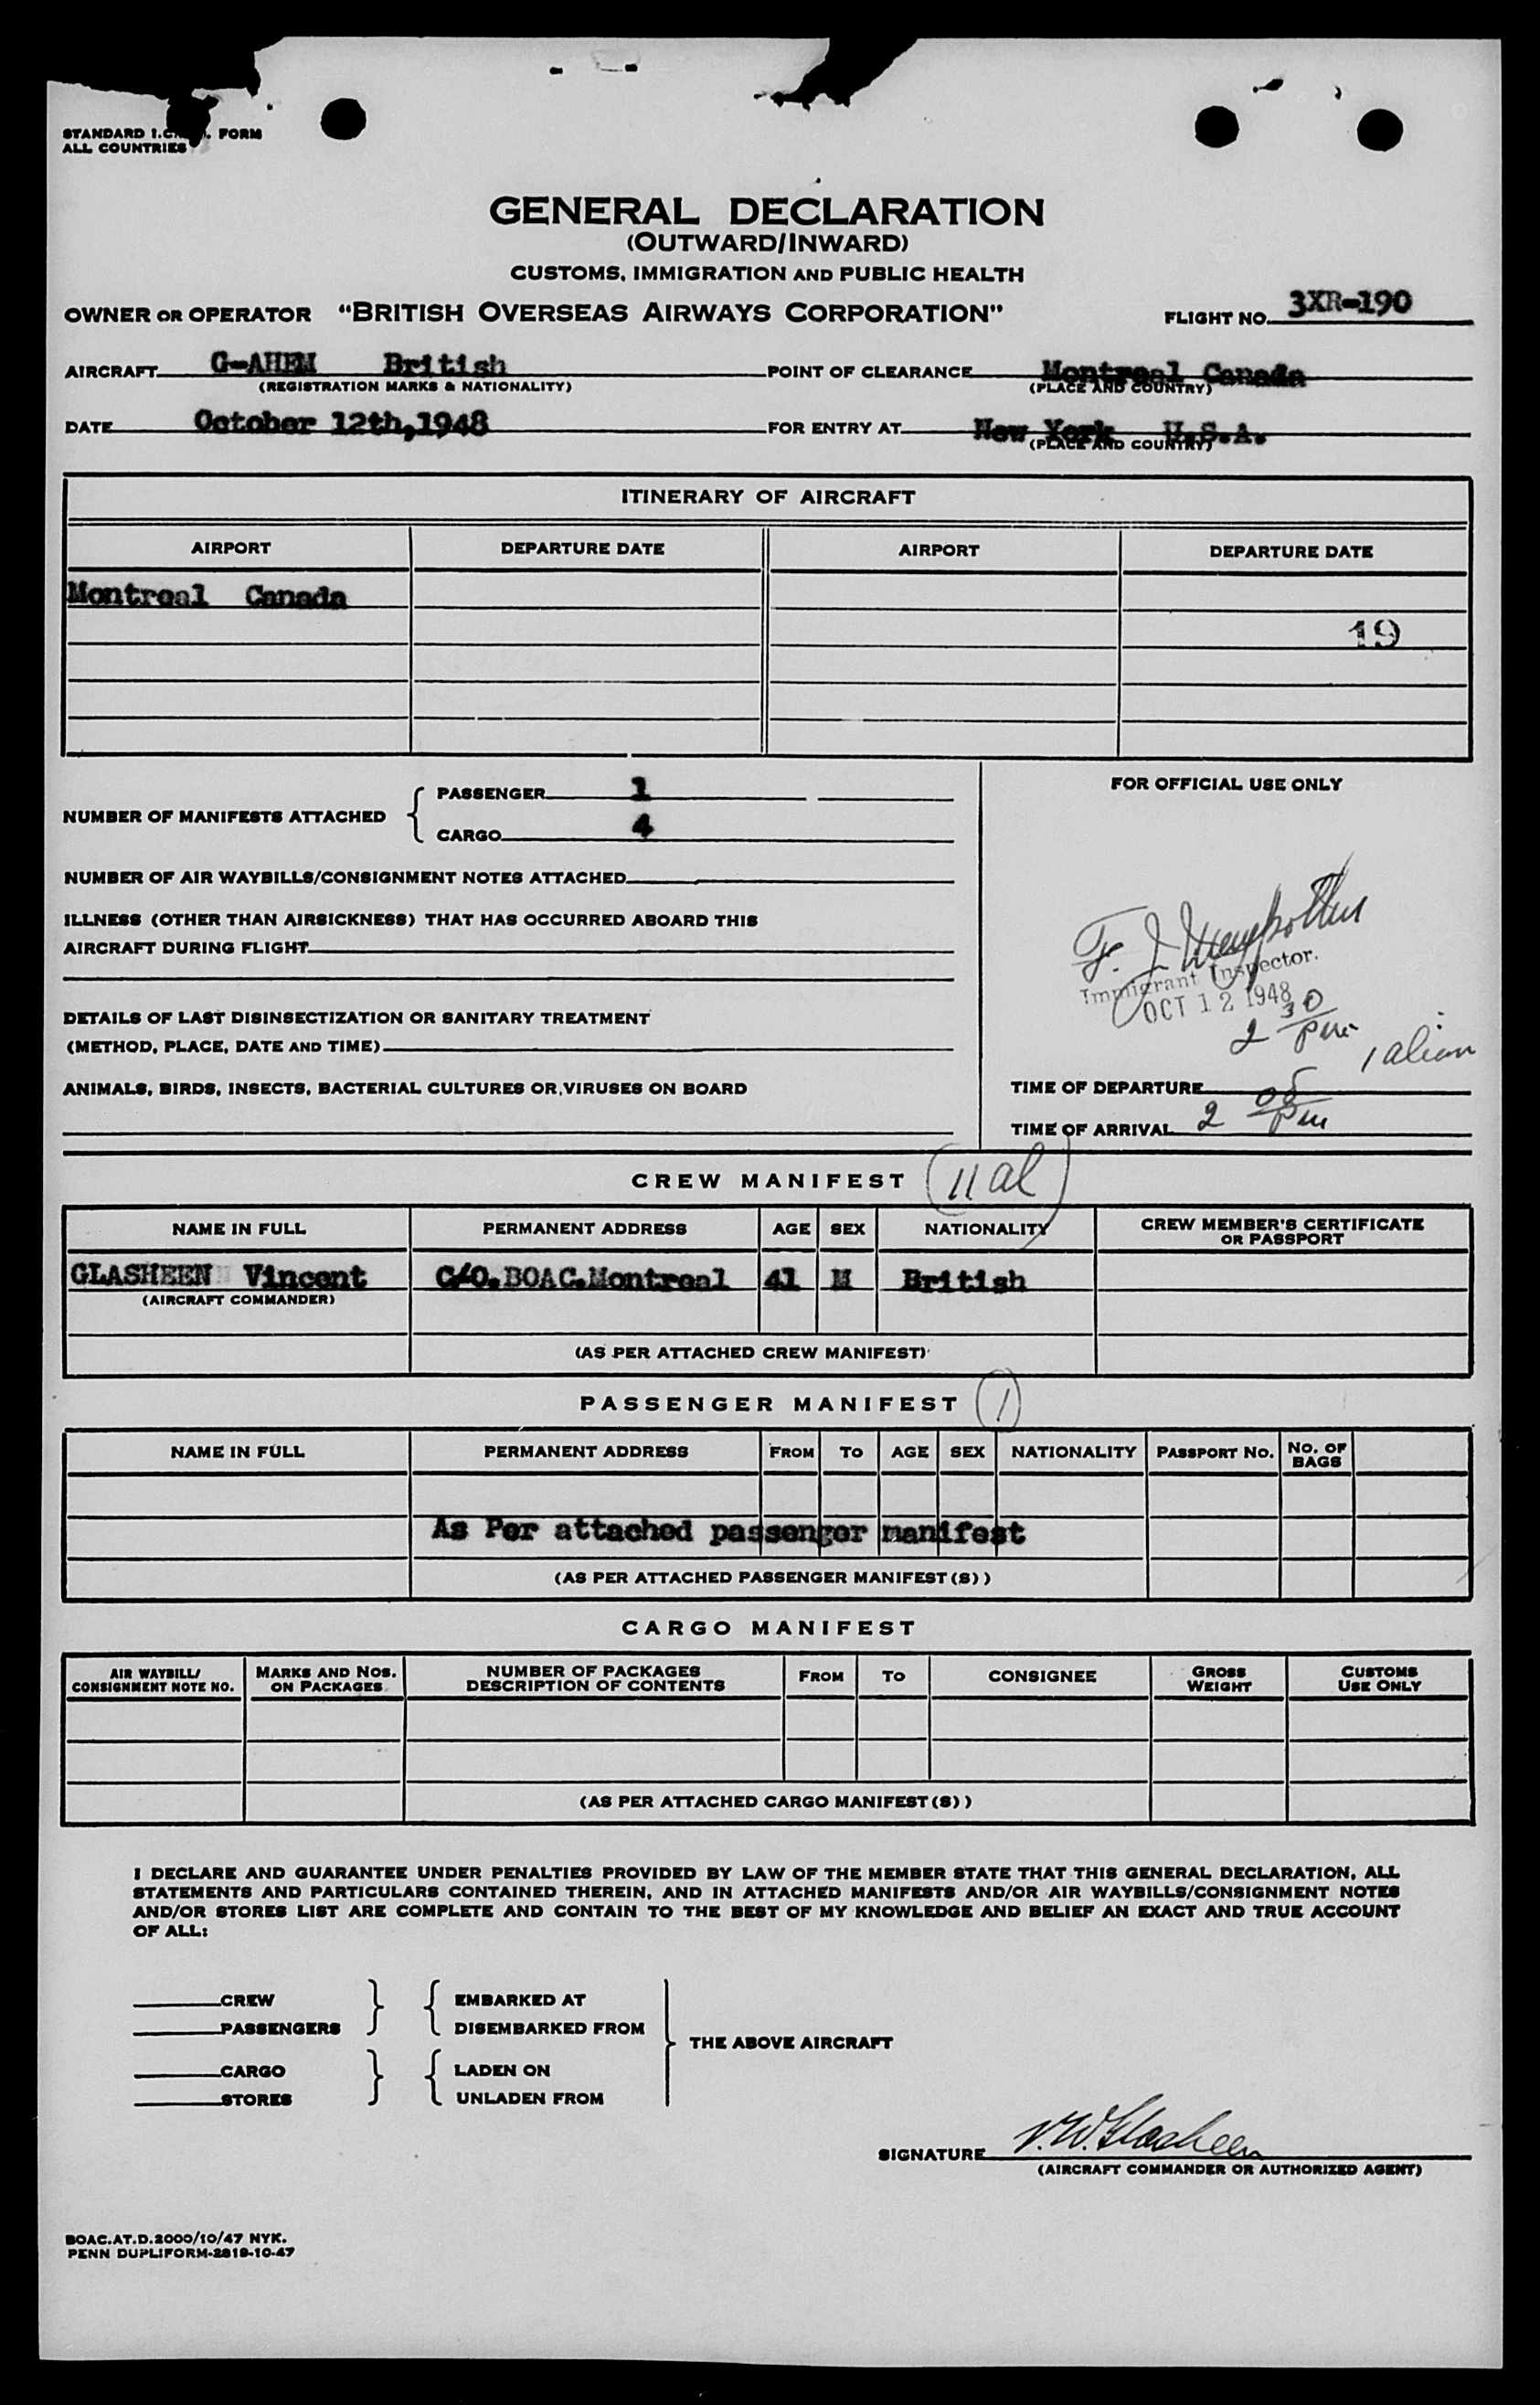 STANDARD I.C. . FORM
ALL COUNTRIES
GENERAL DECLARATION
(OUTWARD/INWARD)
CUSTOMS, IMMIGRATION AND PUBLIC HEALTH
OWNER OR OPERATOR "BRITISH OVERSEAS AIRWAYS CORPORATION" FLIGHT NO. 3XR-190
AIRCRAFT G-AHEM British POINT OF CLEARANCE Montreal Canada
(REGISTRATION MARKS & NATIONALITY) (PLACE AND COUNTRY)
DATE October 12th,1948 FOR ENTRY AT New York U.S.A.
(PLACE AND COUNTRY)
ITINERARY OF AIRCRAFT
AIRPORT DEPARTURE DATE AIRPORT DEPARTURE DATE
Montreal Canada
19
NUMBER OF MANIFESTS ATTACHED
PASSENGER 1
CARGO 4
NUMBER OF AIR WAYBILLS/CONSIGNMENT NOTES ATTACHED
ILLNESS (OTHER THAN AIRSICKNESS) THAT HAS OCCURRED ABOARD THIS
AIRCRAFT DURING FLIGHT
DETAILS OF LAST DISINSECTIZATION OR SANITARY TREATMENT
(METHOD, PLACE, DATE AND TIME)
ANIMALS, BIRDS, INSECTS, BACTERIAL CULTURES OR VIRUSES ON BOARD
FOR OFFICIAL USE ONLY
F. J.
Immigrant Inspector.
OCT 12 1948
2 30 pm
1 alien
TIME OF DEPARTURE
TIME OF ARRIVAL 2 05 pm
CREW MANIFEST 11 al
NAME IN FULL PERMANENT ADDRESS AGE SEX NATIONALITY CREW MEMBER'S CERTIFICATE
OR PASSPORT
GLASHEEN Vincent C/O.BOAC.Montreal 41 M British
(AIRCRAFT COMMANDER)
(AS PER ATTACHED CREW MANIFEST)
PASSENGER MANIFEST 1
NAME IN FULL PERMANENT ADDRESS FROM TO AGE SEX NATIONALITY PASSPORT NO. NO. OF
BAGS
As Per attached passenger manifest
(AS PER ATTACHED PASSENGER MANIFEST(S))
CARGO MANIFEST
AIR WAYBILL/ MARKS AND NOS. NUMBER OF PACKAGES FROM TO CONSIGNEE GROSS CUSTOMS
CONSIGNMENT NOTE NO. ON PACKAGES DESCRIPTION OF CONTENTS WEIGHT USE ONLY
(AS PER ATTACHED CARGO MANIFEST(S))
I DECLARE AND GUARANTEE UNDER PENALTIES PROVIDED BY LAW OF THE MEMBER STATE THAT THIS GENERAL DECLARATION, ALL
STATEMENTS AND PARTICULARS CONTAINED THEREIN, AND IN ATTACHED MANIFESTS AND/OR AIR WAYBILLS/CONSIGNMENT NOTES
AND/OR STORES LIST ARE COMPLETE AND CONTAIN TO THE BEST OF MY KNOWLEDGE AND BELIEF AN EXACT AND TRUE ACCOUNT
OF ALL:
CREW EMBARKED AT
PASSENGERS DISEMBARKED FROM
THE ABOVE AIRCRAFT
CARGO LADEN ON
STORES UNLADEN FROM
SIGNATURE V.W.Glasheen
(AIRCRAFT COMMANDER OR AUTHORIZED AGENT)
BOAC.AT.D.2000/10/47 NYK.
PENN DUPLIFORM-2819-10-47